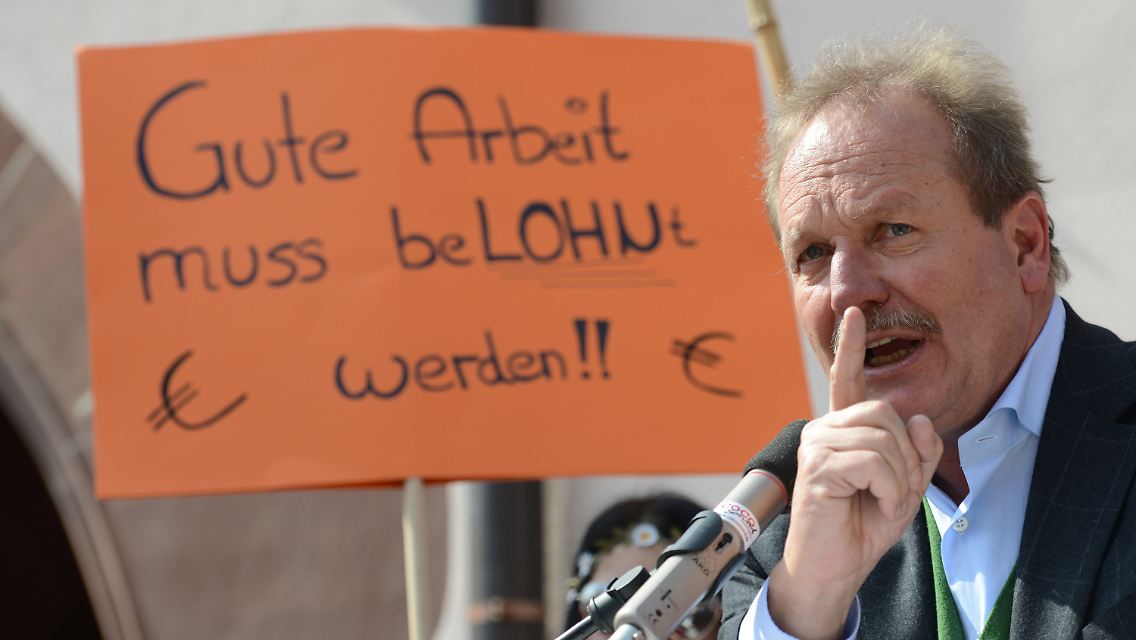 Gute Arbeit
muss beLOHNt
€ werden!! €
AKG